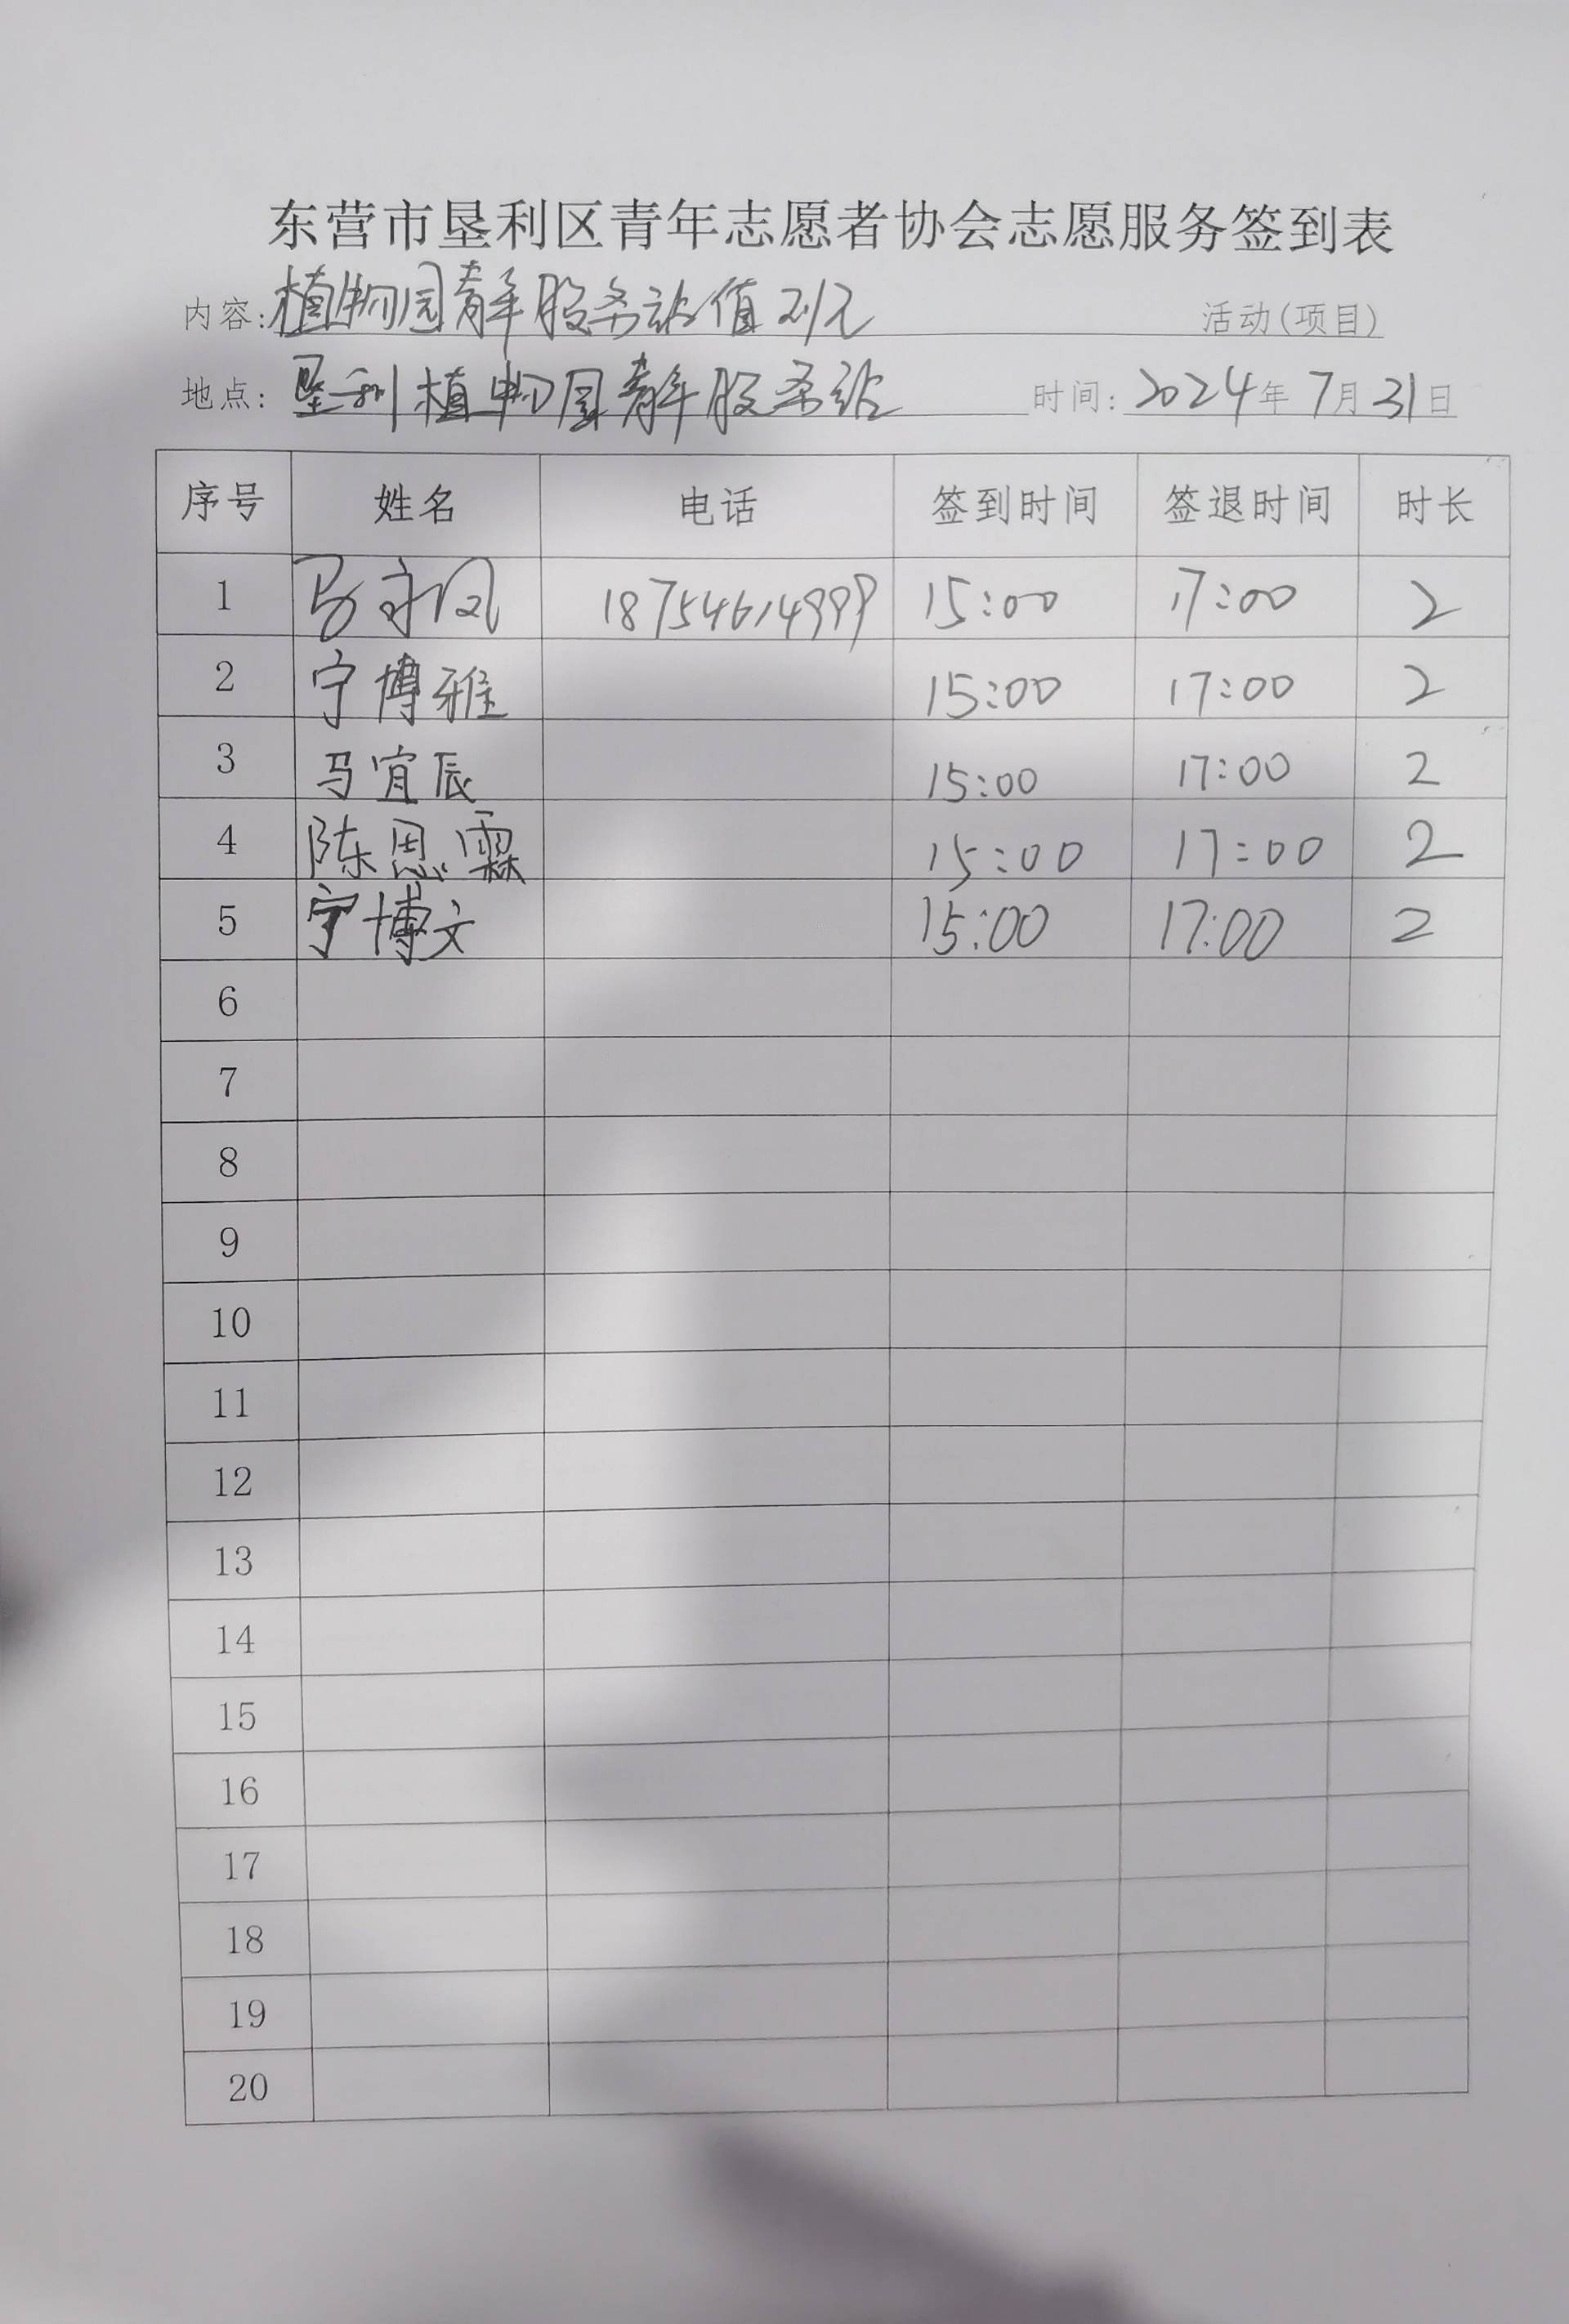 东营市垦利区青年志愿者协会志愿服务签到表
内容:植物园青年服务站值班 活动(项目)
地点:垦利植物园青年服务站 时间:2024年7月31日
序号 姓名 电话 签到时间 签退时间 时长
1 马永凤 18754614999 15:00 17:00 2
2 宁博雅 15:00 17:00 2
3 马宜辰 15:00 17:00 2
4 陈思霖 15:00 17:00 2
5 宁博文 15:00 17:00 2
6
7
8
9
10
11
12
13
14
15
16
17
18
19
20